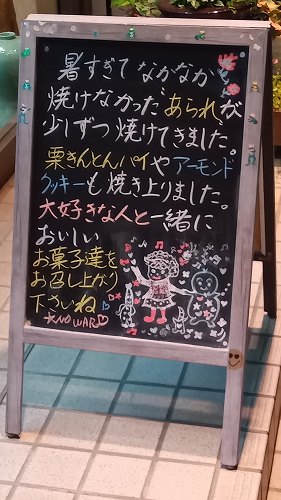 暑すぎて なかなか
焼けなかった"あられ"が
少しずつ焼けてきました。
栗きんとんパイやアーモンド
クッキーも焼き上りました。
大好きな人と一緒に
おいしい
お菓子達を
お召し上がり
下さいね
NO WAR